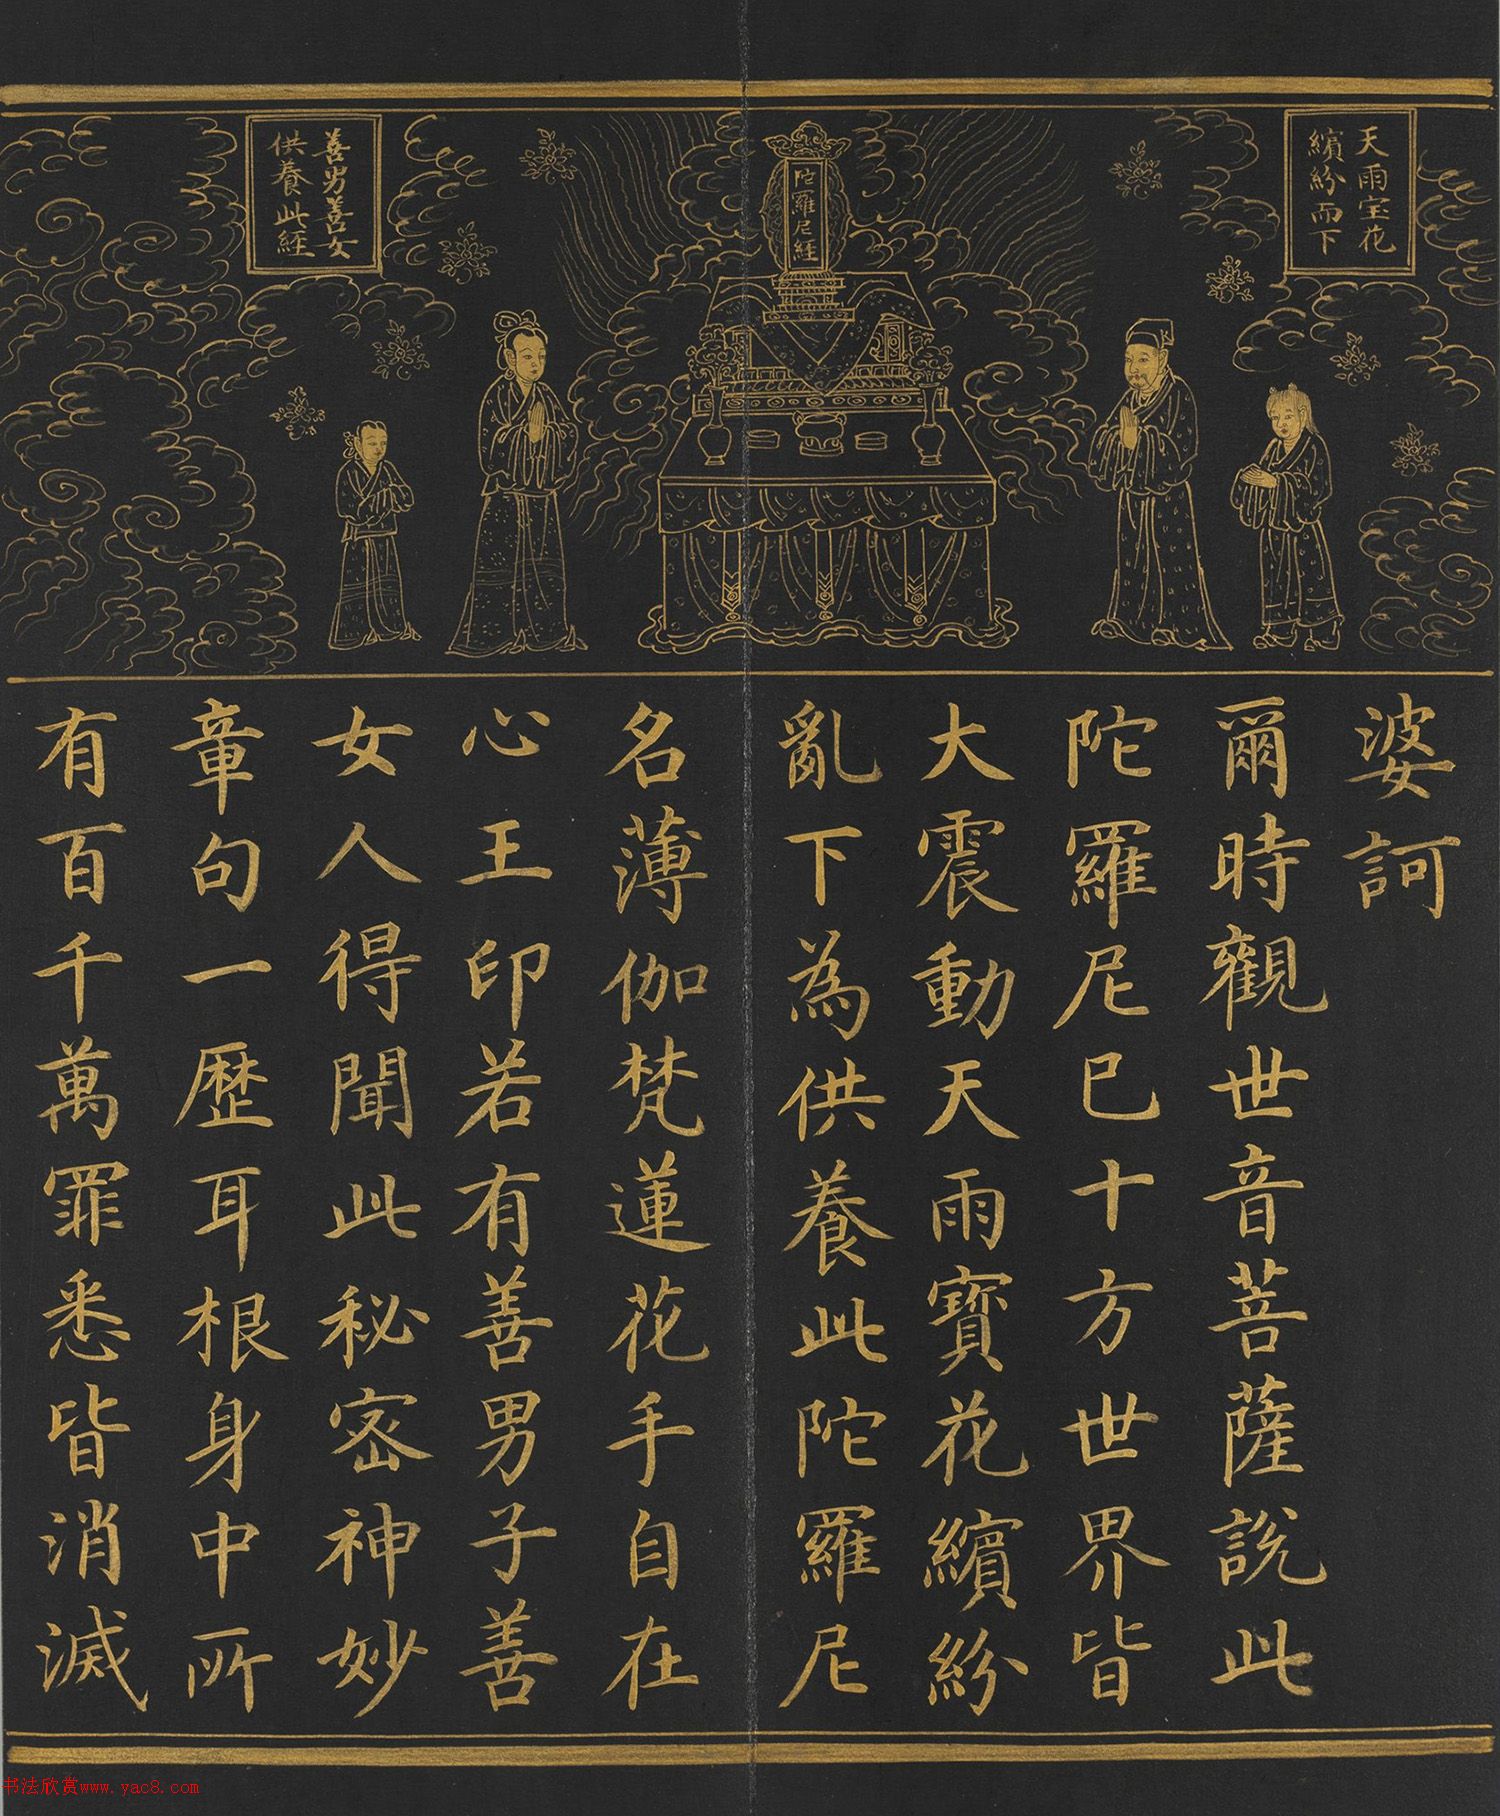 天雨宝花
繽紛而下
陀羅尼經
善男善女
供養此經
婆訶
爾時觀世音菩薩說此
陀羅尼已十方世界皆
大震動天雨寶花繽紛
亂下為供養此陀羅尼
名薄伽梵蓮花手自在
心王印若有善男子善
女人得聞此秘密神妙
章句一歷耳根身中所
有百千萬罪悉皆消滅
书法欣赏www.yac8.com